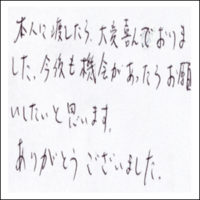 本人に渡したら、大変喜んでおりま
した。今後も機会があったらお願
いしたいと思います。
ありがとうございました。